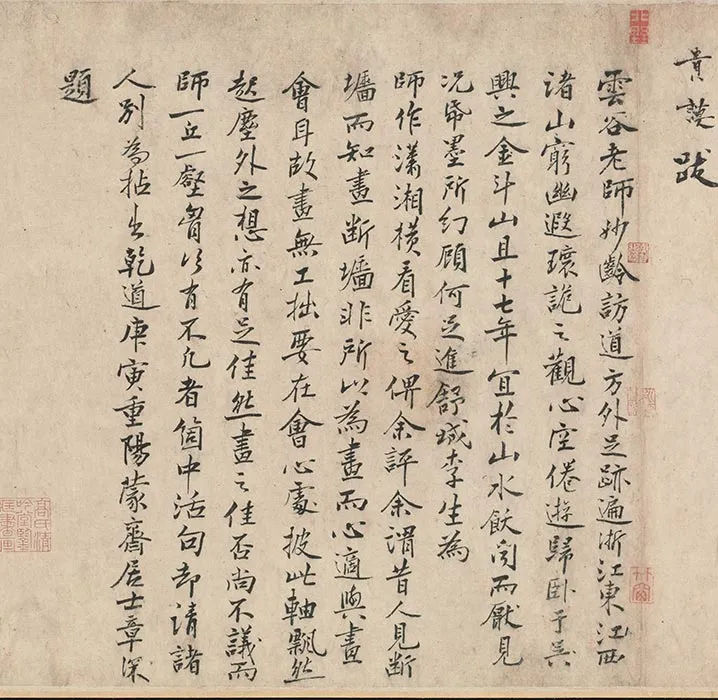 貴謨跋
雲谷老師妙齡訪道方外足跡遍浙江東江西
諸山窮幽遐瓌詭之觀心空倦遊歸卧于吳
興之金斗山且十七年宜於山水飫聞而厭見
況帋墨所幻顧何足進舒城李生為
師作瀟湘橫看愛之俾余評余謂昔人見斷
墻而知畫断墻非所以為畫而心適與畫
會耳故畫無工拙要在會心處披此軸飄然
起塵外之想亦有足佳然畫之佳否尚不議而
師一丘一壑胷次有不凡者箇中活句却請諸
人別為拈出乾道庚寅重陽蒙齋居士章深
題